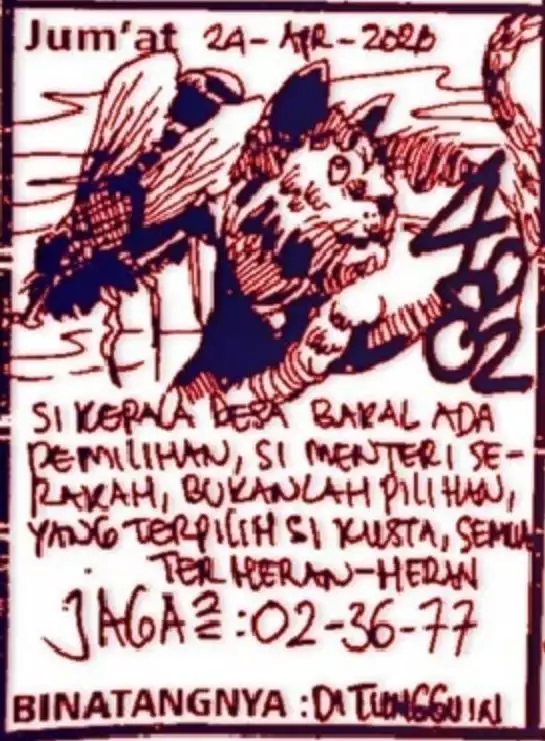 Jum'at 24-APR-2020
4902
SI KEPALA DESA BAKAL ADA
PEMILIHAN, SI MENTERI SE-
RAKAH, BUKANLAH PILIHAN,
YANG TERPILIH SI KUSTA, SEMUA
TERHERAN-HERAN
JAGA2 : 02-36-77
BINATANGNYA : DITUNGGUIN